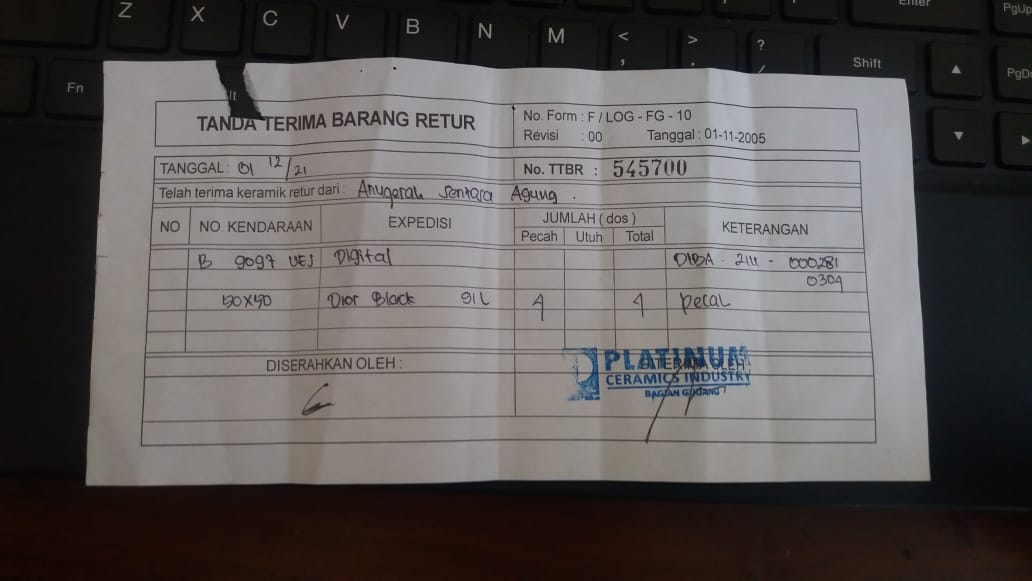 Z X C V B N M < > ? Enter PgUp
, . / Shift PgDn
Fn lt
TANDA TERIMA BARANG RETUR
No. Form : F / LOG - FG - 10
Revisi : 00 Tanggal : 01-11-2005
TANGGAL : 01 12/21 No. TTBR : 545700
Telah terima keramik retur dari : Anugerah Sentosa Agung .
NO NO. KENDARAAN EXPEDISI JUMLAH ( dos ) KETERANGAN
Pecah Utuh Total
B 9097 UEJ Digital DIBA . 2111 - 000281
0304
50x50 Dior Black 4 4 pecah
DISERAHKAN OLEH : DITERIMA OLEH
PLATINUM
CERAMICS INDUSTRY
BAGIAN GUDANG